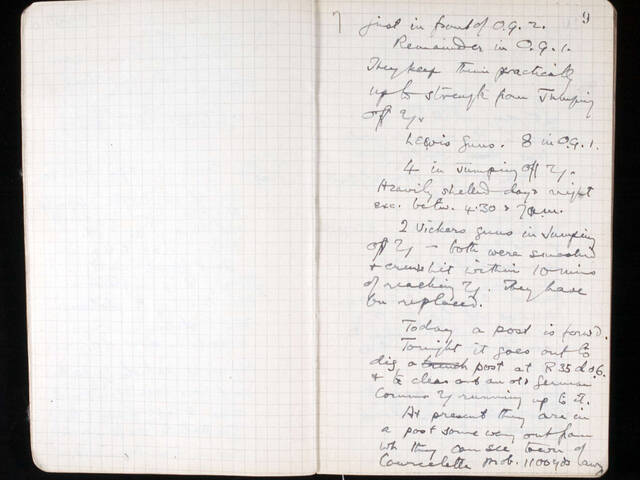 9
just in front of O.G. 2.
Remainder in O.G. 1.
They keep them practically
up to strength from Jumping
off Tr.
Lewis guns. 8 in O.G. 1.
4 in Jumping off Tr.
Heavily shelled day & night
exc. betw. 4.30 & 7 a.m.
2 Vickers guns in Jumping
off Tr – both were smashed
& crews hit within 10 mins
of reaching Tr. They have
bn replaced.
Today a post is forwd.
Tonight it goes out to
dig a trench post at R 35 d
& to clean out an old German
Comms Tr running up to it.
At present they are in
a post some way out from
wh they can see town of
Courcelette prob. 1100 yds away